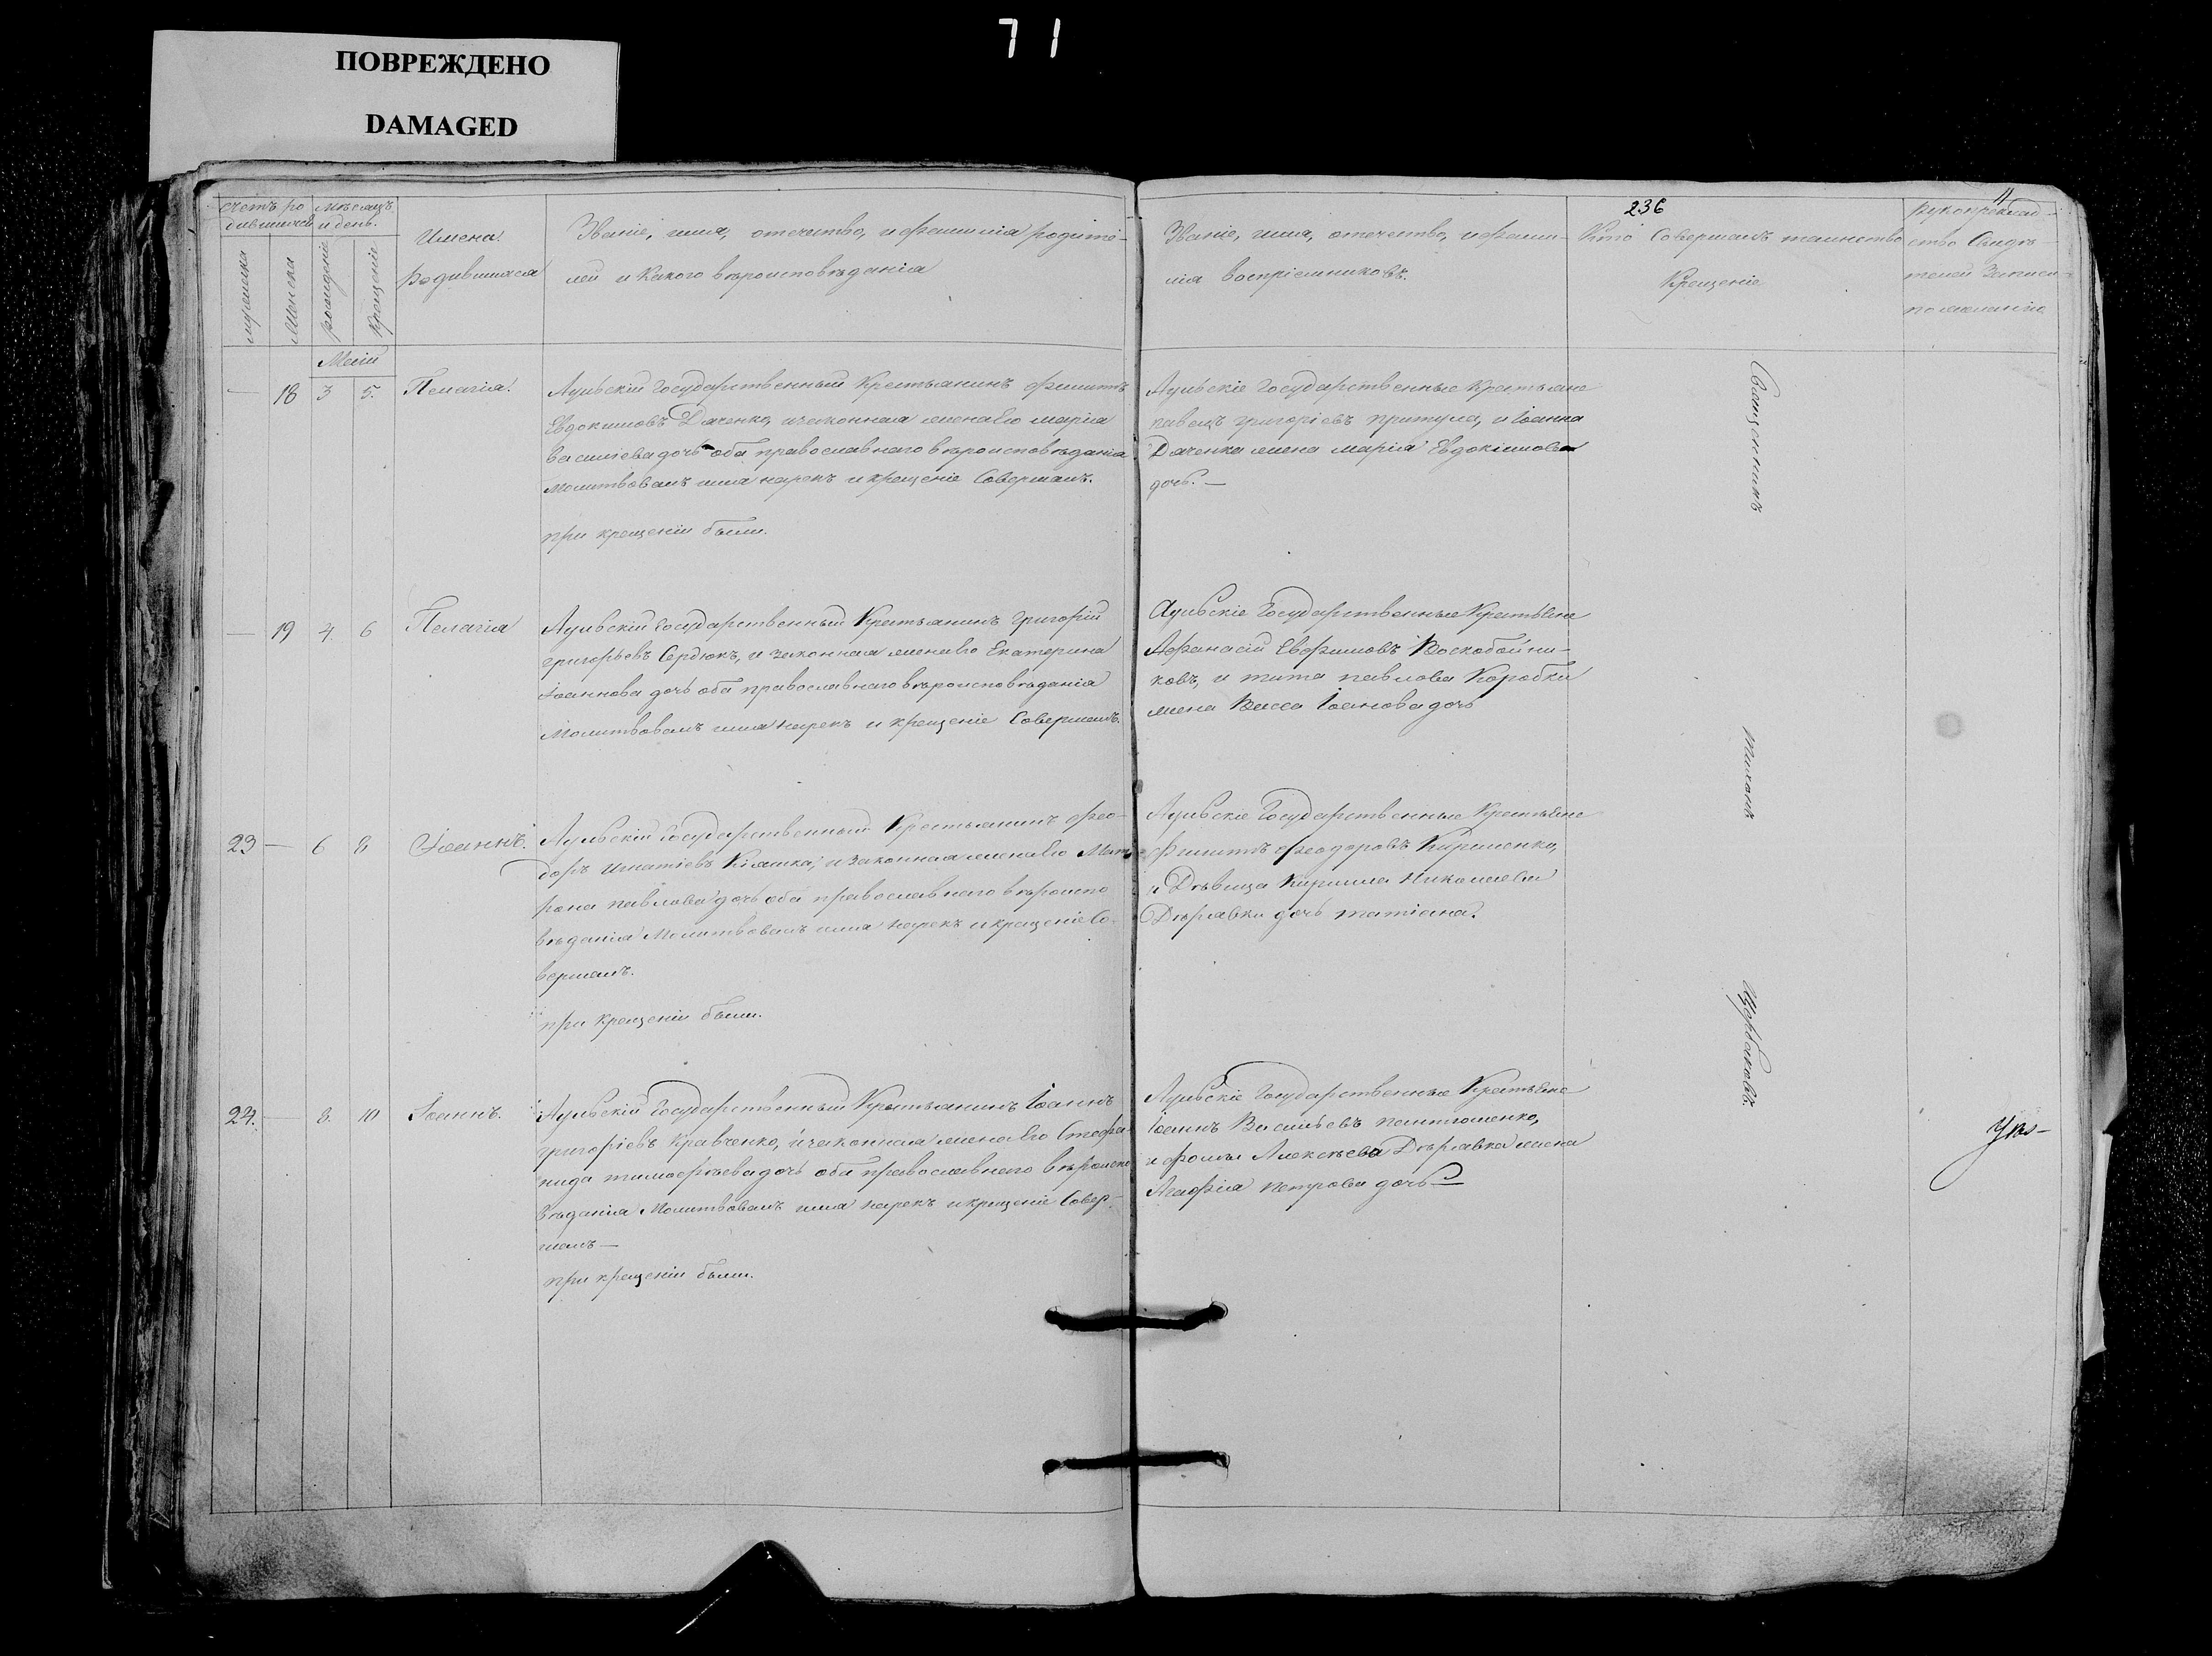 71
ПОВРЕЖДЕНО
DAMAGED
236
11
счетъ ро
дившихся
мѣсяцъ
и день.
мужеска
Женска
рожденіе
Крещеніе
Имена
родившихся
Званіе, имя, отечество, и фамилія родите-
лей и Какого вѣроисповѣданія
Званіе, имя, отечество, и фами-
лія воспріемниковъ.
Кто Совершалъ таинство
Крещеніе
рукоприклад-
ство Свидѣ-
телей записи
по желанію
Маій
— 18 3 5. Пелагія.
Аульскій Государственный Крестьянинъ филиппъ
Евдокимовъ Дяченко, и законная жена Его марія
васильева дочь оба православнаго вѣроисповѣданія
Молитвовалъ имя нарекъ и крещеніе Совершалъ.
при крещеніи были.
Аульскіе Государственные Крестьяне
павелъ григоріевъ притула, и Іоанна
Дяченка жена марія Евдокимова
дочь. —
— 19 4. 6 Пелагія
Аульскій Государственный Крестьянинъ Григорій
григорьевъ Сердюкъ, и законная жена Его Екатерина
Іоаннова дочь оба православнаго вѣроисповѣданія
Молитвовалъ имя нарекъ и крещеніе Совершалъ.
Аульскіе Государственные Крестьяне
Афанасій Евфимовъ Воскобойни-
ковъ, и тита павлова Коробки
жена Васса Іоанова дочь
23 — 6 8 Іоаннъ.
Аульскій Государственный Крестьянинъ фео-
доръ игнатіевъ Кіяшка, и законная жена Его Мат
рона павлова дочь оба православнаго вѣроиспо
вѣданія Молитвовалъ имя нарекъ и крещеніе Со-
вершалъ.
при крещеніи были.
Аульскіе Государственные Крестьяне
филиппъ феодоровъ Кириленко,
и Дѣвица Кирилла Николаева
Дѣркавки дочь татіана.
24. — 8. 10 Іоаннъ.
Аульскій Государственный Крестьянинъ Іоаннъ
григоріевъ Кравченко, и законная жена Его Стефа
нида тимофѣева дочь оба православнаго вѣроиспо
вѣданія Молитвовалъ имя нарекъ и крещеніе Совер-
шалъ —
при крещеніи были.
Аульскіе Государственные Крестьяне
Іоаннъ Васильевъ
и фомы Алексѣева Дѣркавка жена
Агафія петрова дочь —
Священникъ
тихонъ
Щербаковъ.